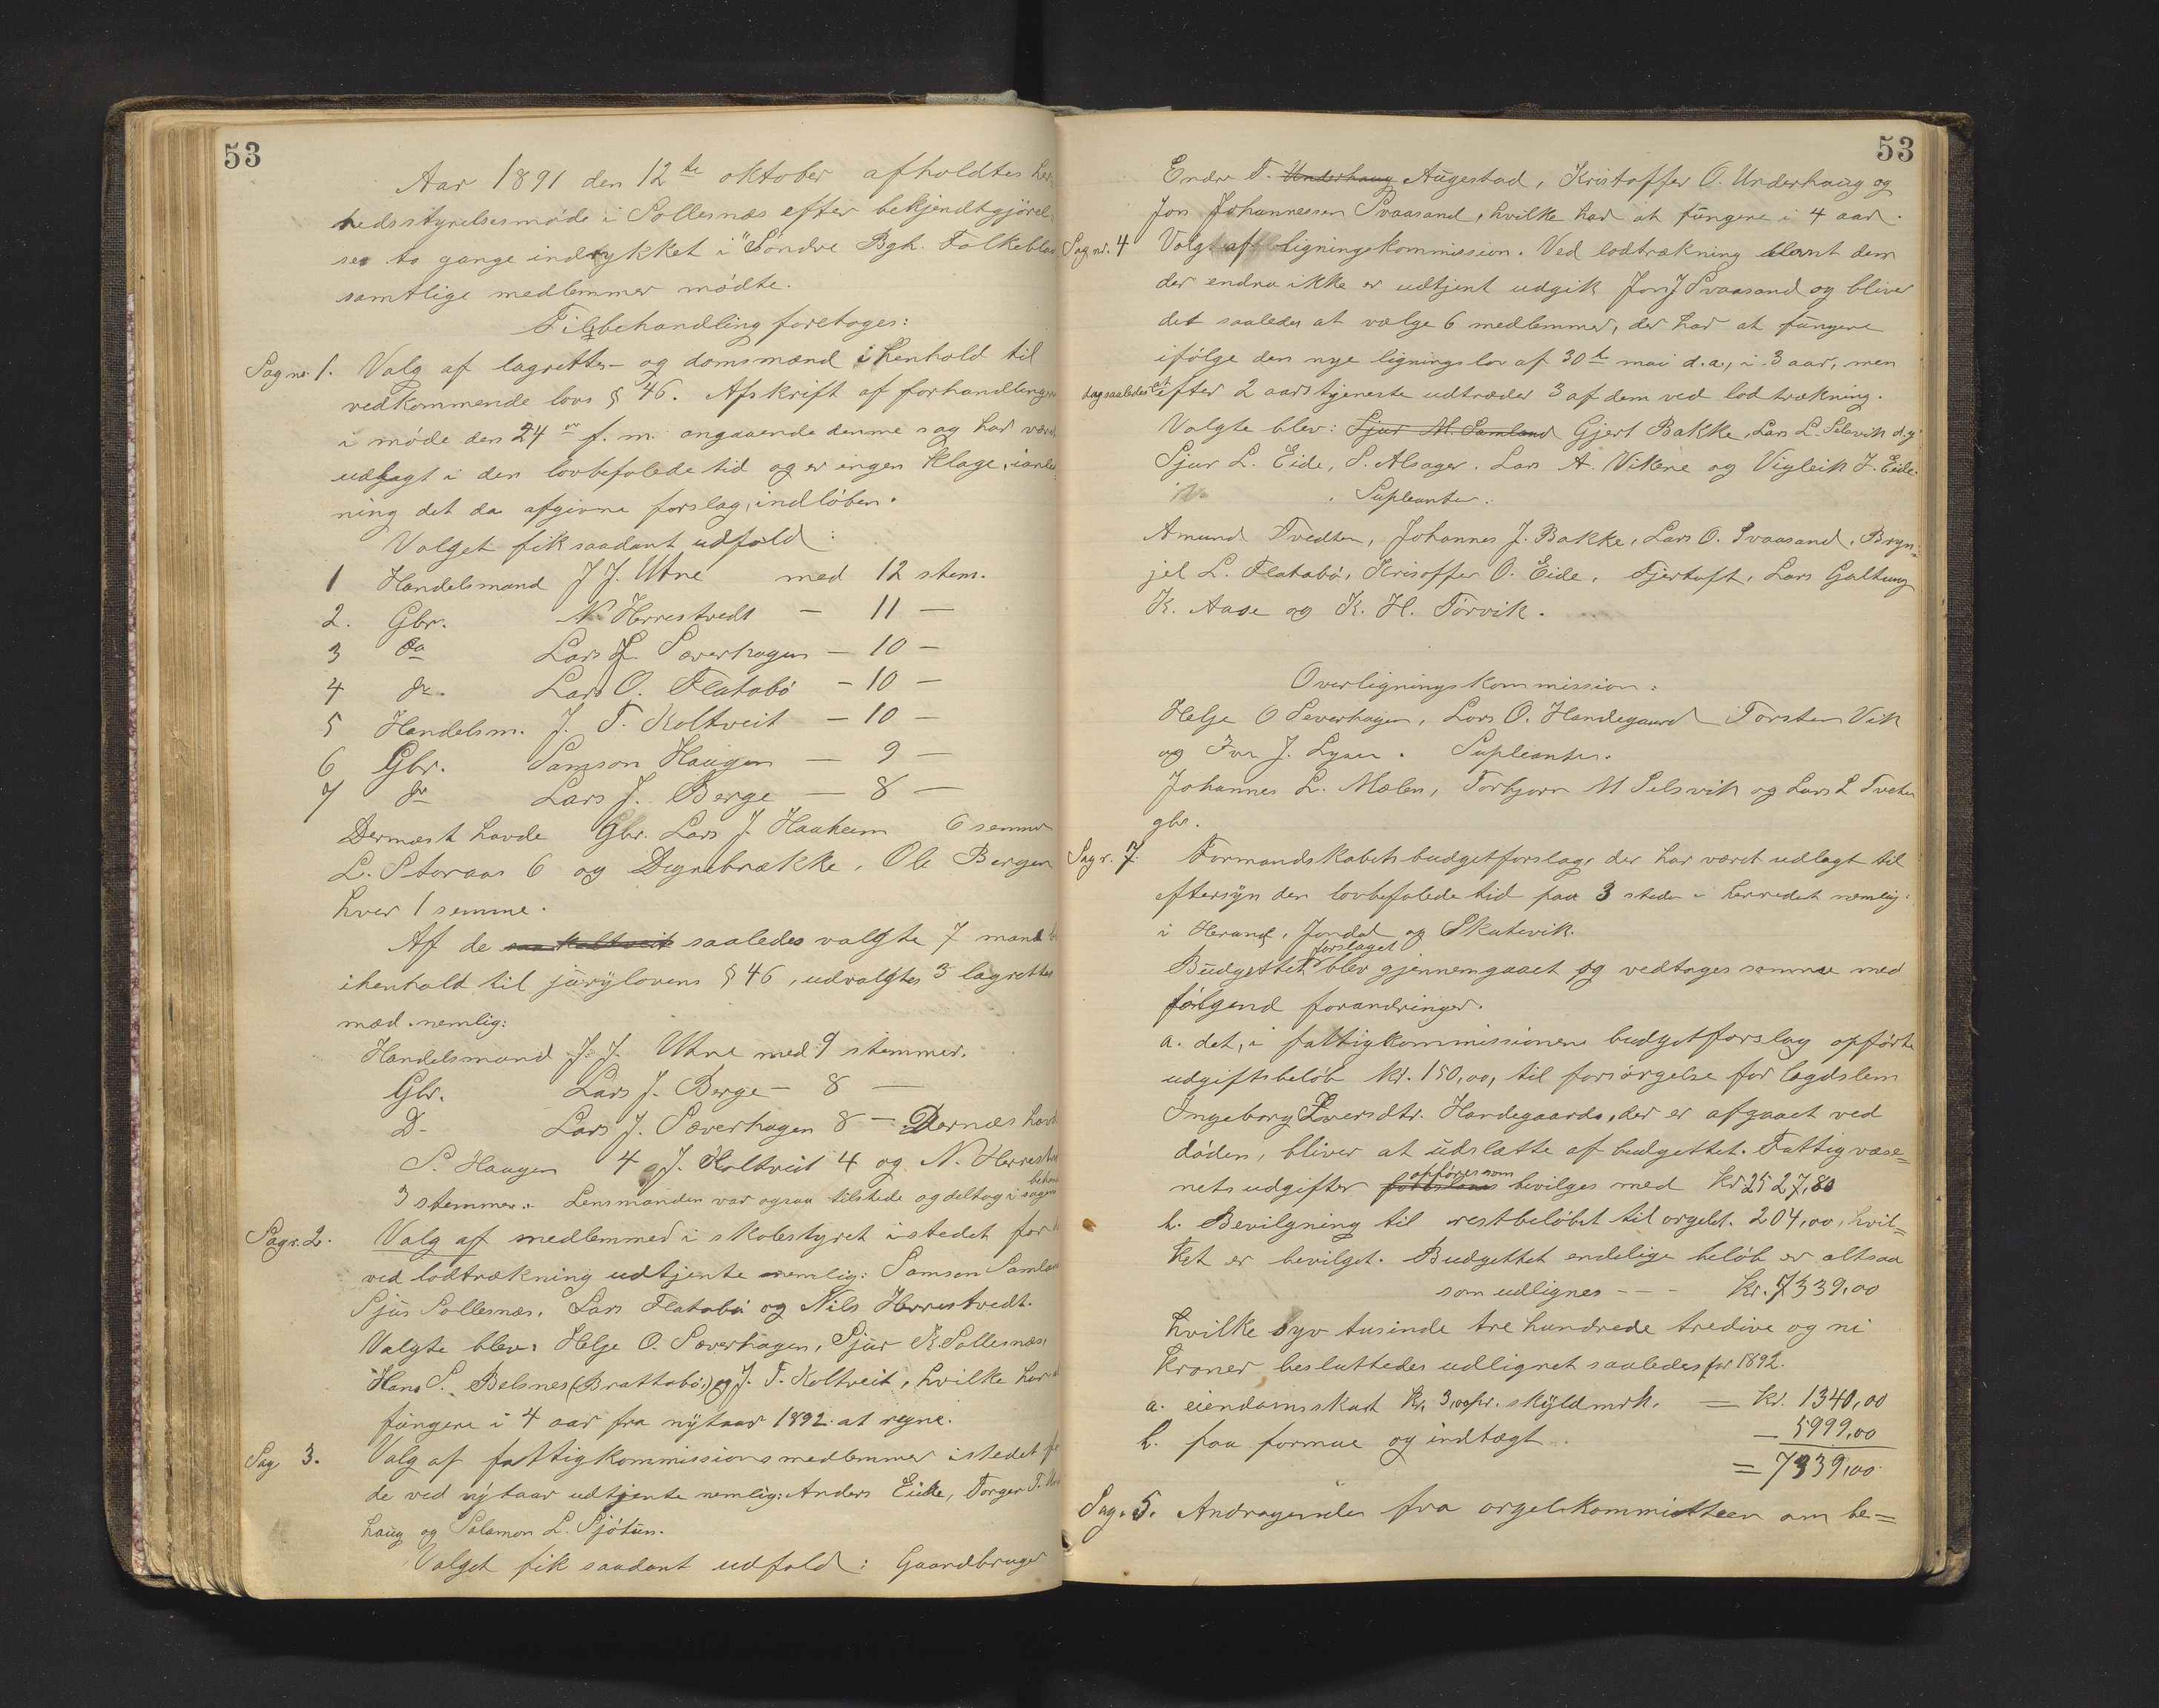 53
Aar 1891 den 12te oktober afholdtes her-
redsstyrelsesmøde i Sollesnæs efter bekjendtgjørel-
ser to gange indrykket i "Søndre Bgh. Folkeblad
samtlige medlemmer mødte.
Til behandling foretoges:
Sag nr. 1. Valg af lagrettes- og domsmænd i henhold til
vedkommende lovs § 46. Afskrift af forhandlingen
i møde den 24de f. m. angaaende denne sag har været
udlagt i den lovbefalede tid og er ingen klage, i anled-
ning det da afgivne forslag, indløben.
Valget fik saadant udfald:
1 Handelsmand J J. Utne med 12 stem.
2. Gbr. N. Herrestvedt — 11 —
3 do Lars J. Sæverhagen — 10 —
4 do. Lars O. Flatabø — 10 —
5 Handelsm. J. T. Koltveit — 10 —
6 Gbr. Samson Haugen — 9 —
7 do Lars J. Berge — 8 —
Dernæst havde Gbr. Lars J. Haaheim 6 semmer
L. Storaas 6 og Degnebrække, Ole Bergen
hver 1 semme.
Af de saa Koltveit saaledes valgte 7 mand
ihenhold til jurylovens § 46, udvalgtes 3 lagrettes
mæd. nemlig:
Handelsmand J. J. Utne med 9 stemmer.
Gbr. Lars J. Berge — 8 —
D- Lars J. Sæverhagen 8 — Dernæs havde
S. Haugen 4 J. Koltveit 4 og N. Herrestve
3 stemmer. Lensmanden var ogsaa tilstede og deltog i sagens behand
Sag r. 2. Valg af medlemmed i skolestyret istedet for de
ved lodtrækning udtjente nemlig: Samson Samland
Sjur Sollesnæs, Lars Flatabø og Nils Herrestvedt.
Valgte blev: Helge O. Sæverhagen, Sjur K. Sollesnæs,
Hans S. Belsnes (Brattabø) og J. T. Koltveit, hvilke har at
fungere i 4 aar fra nytaar 1892 at regne.
Sag 3. Valg af fattigkommissionsmedlemmer istedet for
de ved nytaar udtjente nemlig: Anders Eide, Torger T. Un
haug og Salamon L. Sjøtun.
Valget fik saadant udfald: Gaardbruger
53
Endre T. Underhaug Augestad, Kristoffer O. Underhaug og
Jon Johannessen Svaasand, hvilke har at fungere i 4 aar.
Sag nr. 4 Valg af ligningskommission. Ved lodtrækning blant dem
der endnu ikke er udtjent udgik Jon J Svaasand og bliver
det saaledes at vælge 6 medlemmer, der har at fungere
ifølge den nye ligningslov af 30te mai d.a., i 3 aar, men
dog saaledes at efter 2 aars tjeneste udtræder 3 af dem ved lodtrækning.
Valgte blev: Sjur M. Samland Gjert Bakke, Lars L. Selsvik d.y.
Sjur L. Eide, S. Alsager. Lars A. Vikene og Vigleik J. Eide.
Supleanter:
Amund Tvedten, Johannes J. Bakke, Lars O. Svaasand, Bryn-
jel L. Flatabø, Krisoffer O. Eide, Fjertoft, Lars Galtung
K. Aase og K. H. Tørvik.
Overligningskommission:
Helge O Sæverhagen, Lars O. Handegaard Torsten Vik
og Ivar J. Lysen. Supleanter.
Johannes L. Mælen, Torbjørn M Selsvik og Lars L Tveten
gbr.
Sag r. 7. Formandskabets budgetforslag, der har været udlagt til
eftersyn den lovbefalede tid paa 3 steder i herredet nemlig:
i Herand, Jondal og Skutevik.
Budgettet forslaget blev gjennemgaaet og vedtoges samme med
følgend forandringer.
a. det, i fattigkommissionens budgetforslag opførte
udgiftsbeløb kr. 150,00, til forsørgelse for lægdslem
Ingeborg Iversdtr. Handegaards, der er afgaaet ved
døden, bliver at udslætte af budgettet. Fattigvæse-
nets udgifter opføres som bevilges med kr 2527,80
b. Bevilgning til restbeløbet til orgelet. 204,00, hvil-
ket er bevilget. Budgettet endelige beløb er altsaa
som udlignes - - - kr. 7339,00
hvilke syv tusinde tre hundrede tredive og ni
kroner besluttedes udlignet saaledes for 1892.
a. eiendomsskat kr. 3,00 pr. skyldmrk. = kr. 1340,00
b. paa formue og indtægt — 5999,00
= 7339,00
Sag. 5. Andragende fra orgelkommitteen om be-